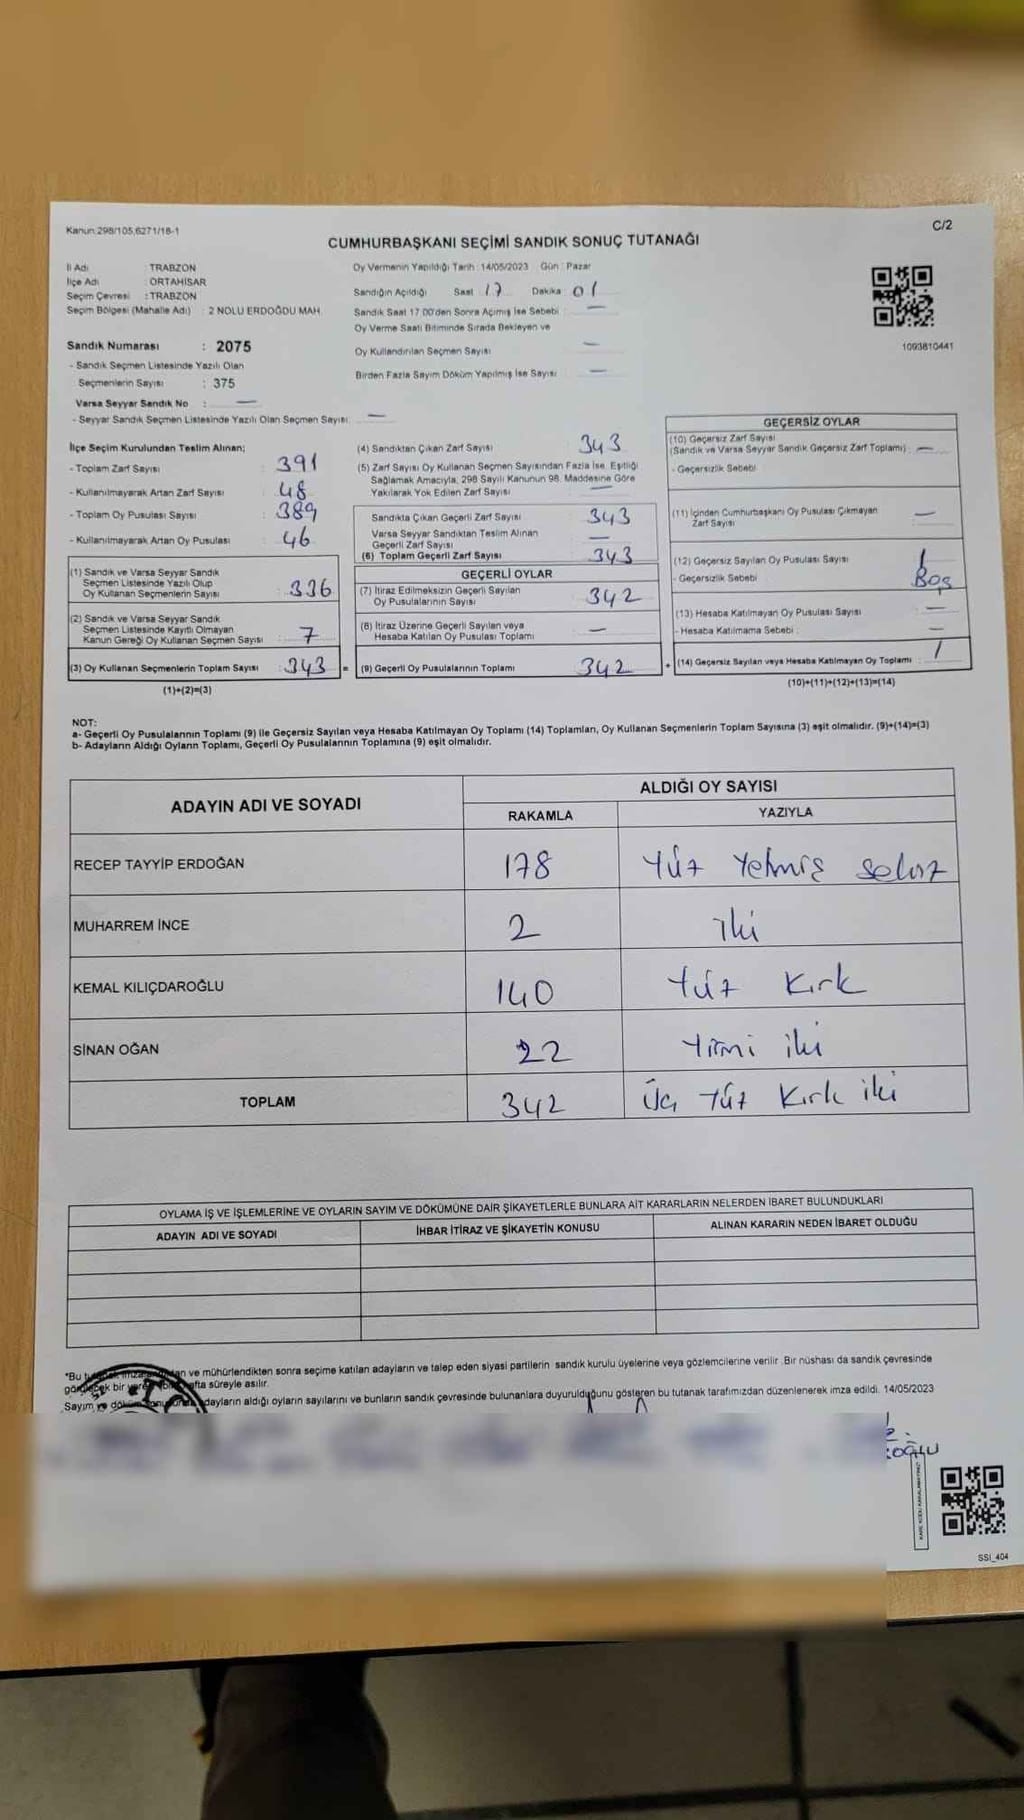 Kanun:298/105,6271/18-1
C/2
CUMHURBAŞKANI SEÇİMİ SANDIK SONUÇ TUTANAĞI
İl Adı : TRABZON
İlçe Adı : ORTAHİSAR
Seçim Çevresi : TRABZON
Seçim Bölgesi (Mahalle Adı) : 2 NOLU ERDOĞDU MAH.
Oy Vermenin Yapıldığı Tarih : 14/05/2023 Gün : Pazar
Sandığın Açıldığı Saat 17 Dakika 01
Sandık Saat 17.00'den Sonra Açımış İse Sebebi : —
Oy Verme Saati Bitiminde Sırada Bekleyen ve
Oy Kullandırılan Seçmen Sayısı —
Birden Fazla Sayım Döküm Yapılmış İse Sayısı : —
1093810441
Sandık Numarası : 2075
- Sandık Seçmen Listesinde Yazılı Olan
Seçmenlerin Sayısı : 375
Varsa Seyyar Sandık No : —
- Seyyar Sandık Seçmen Listesinde Yazılı Olan Seçmen Sayısı: —
İlçe Seçim Kurulundan Teslim Alınan;
- Toplam Zarf Sayısı : 391
- Kullanılmayarak Artan Zarf Sayısı : 48
- Toplam Oy Pusulası Sayısı : 389
- Kullanılmayarak Artan Oy Pusulası : 46
(1) Sandık ve Varsa Seyyar Sandık
Seçmen Listesinde Yazılı Olup
Oy Kullanan Seçmenlerin Sayısı : 336
(2) Sandık ve Varsa Seyyar Sandık
Seçmen Listesinde Kayıtlı Olmayan
Kanun Gereği Oy Kullanan Seçmen Sayısı : 7
(3) Oy Kullanan Seçmenlerin Toplam Sayısı : 343 =
(1)+(2)=(3)
(4) Sandıktan Çıkan Zarf Sayısı 343
(5) Zarf Sayısı Oy Kullanan Seçmen Sayısından Fazla İse, Eşitliği
Sağlamak Amacıyla, 298 Sayılı Kanunun 98. Maddesine Göre
Yakılarak Yok Edilen Zarf Sayısı —
Sandıkta Çıkan Geçerli Zarf Sayısı 343
Varsa Seyyar Sandıktan Teslim Alınan
Geçerli Zarf Sayısı —
(6) Toplam Geçerli Zarf Sayısı 343
GEÇERLİ OYLAR
(7) İtiraz Edilmeksizin Geçerli Sayılan
Oy Pusulalarının Sayısı 342
(8) İtiraz Üzerine Geçerli Sayılan veya
Hesaba Katılan Oy Pusulası Toplamı —
(9) Geçerli Oy Pusulalarının Toplamı 342 +
GEÇERSİZ OYLAR
(10) Geçersiz Zarf Sayısı
(Sandık ve Varsa Seyyar Sandık Geçersiz Zarf Toplamı) —
- Geçersizlik Sebebi
(11) İçinden Cumhurbaşkanı Oy Pusulası Çıkmayan
Zarf Sayısı —
(12) Geçersiz Sayılan Oy Pusulası Sayısı 1
- Geçersizlik Sebebi Boş
(13) Hesaba Katılmayan Oy Pusulası Sayısı —
- Hesaba Katılmama Sebebi : —
(14) Geçersiz Sayılan veya Hesaba Katılmayan Oy Toplamı : 1
(10)+(11)+(12)+(13)=(14)
NOT:
a- Geçerli Oy Pusulalarının Toplamı (9) ile Geçersiz Sayılan veya Hesaba Katılmayan Oy Toplamı (14) Toplamları, Oy Kullanan Seçmenlerin Toplam Sayısına (3) eşit olmalıdır. (9)+(14)=(3)
b- Adayların Aldığı Oyların Toplamı, Geçerli Oy Pusulalarının Toplamına (9) eşit olmalıdır.
ADAYIN ADI VE SOYADI
ALDIĞI OY SAYISI
RAKAMLA YAZIYLA
RECEP TAYYİP ERDOĞAN 178 Yüz Yetmiş Sekiz
MUHARREM İNCE 2 iki
KEMAL KILIÇDAROĞLU 140 Yüz Kırk
SİNAN OĞAN 22 Yirmi iki
TOPLAM 342 Üç Yüz Kırk iki
OYLAMA İŞ VE İŞLEMLERİNE VE OYLARIN SAYIM VE DÖKÜMÜNE DAİR ŞİKAYETLERLE BUNLARA AİT KARARLARIN NELERDEN İBARET BULUNDUKLARI
ADAYIN ADI VE SOYADI İHBAR İTİRAZ VE ŞİKAYETİN KONUSU ALINAN KARARIN NEDEN İBARET OLDUĞU
*Bu ve mühürlendikten sonra seçime katılan adayların ve talep eden siyasi partilerin sandık kurulu üyelerine veya gözlemcilerine verilir. Bir nüshası da sandık çevresinde
bir süreyle asılır.
Sayım ve adayların aldığı oyların sayılarını ve bunların sandık çevresinde bulunanlara duyurulduğunu gösteren bu tutanak tarafımızdan düzenlenerek imza edildi. 14/05/2023
SSI_404